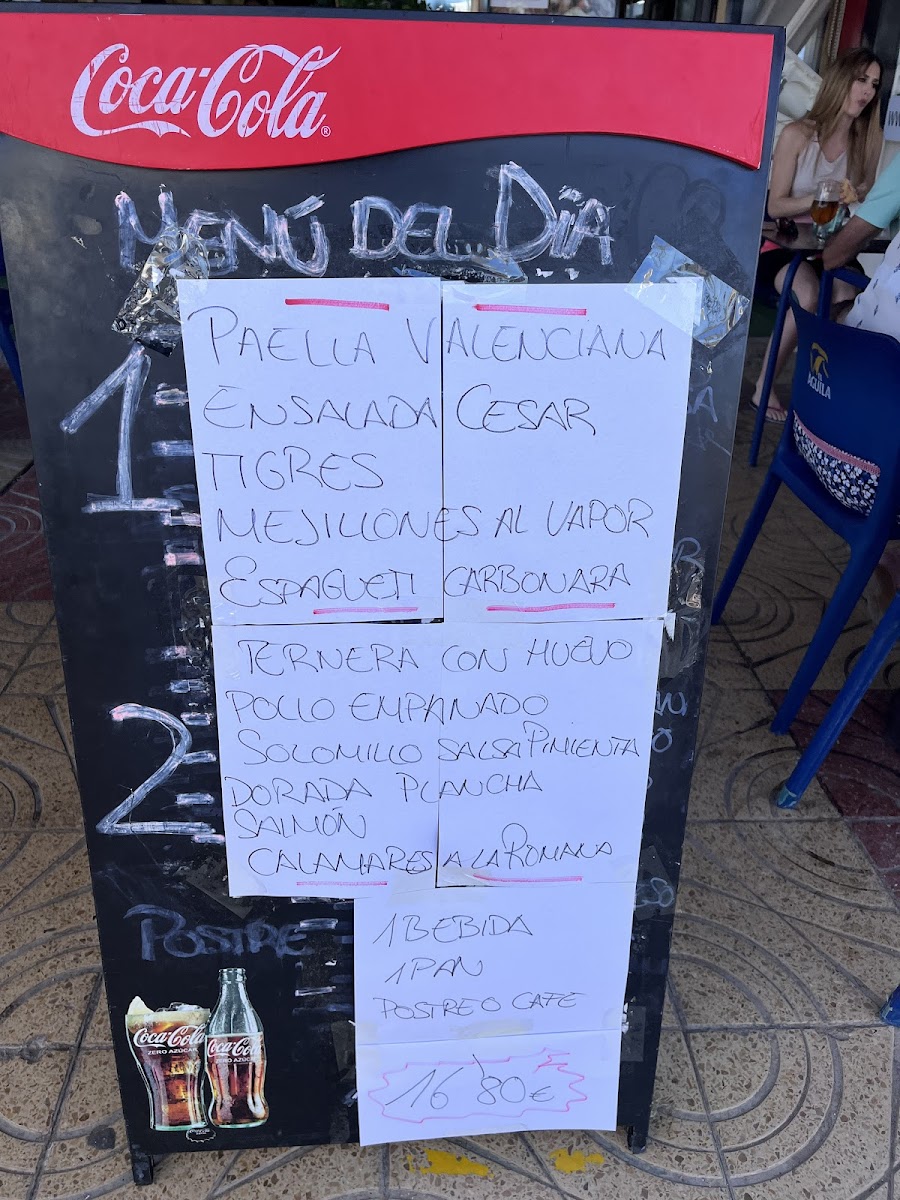 Coca-Cola®
MENÚ DEL DÍA
1
PAELLA VALENCIANA
ENSALADA CESAR
TIGRES
MEJILLONES AL VAPOR
ESPAGUETI CARBONARA
2
TERNERA CON HUEVO
POLLO EMPANADO
SOLOMILLO SALSA PIMIENTA
DORADA PLANCHA
SALMÓN
CALAMARES A LA ROMANA
POSTRE
1 BEBIDA
1 PAN
POSTRE O CAFE
16'80€
Coca-Cola
ZERO AZÚCAR
Coca-Cola
ZERO AZÚCAR
EL
AGUILA